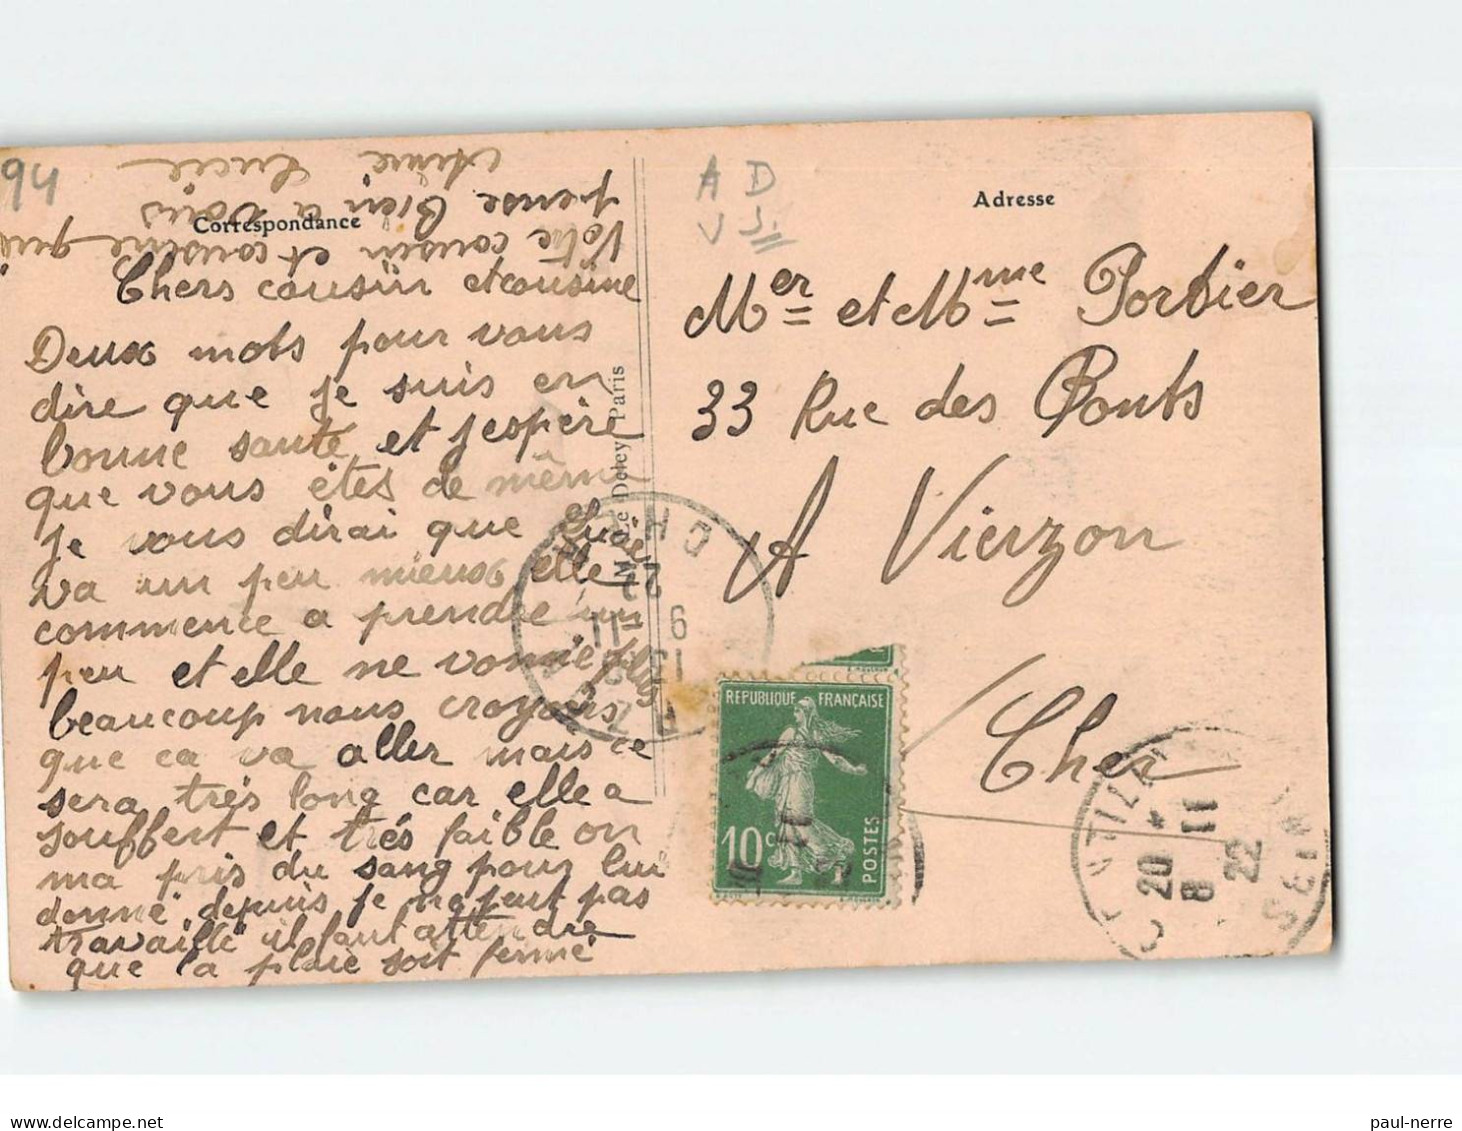 94
Correspondance
Chers cousin et cousine
Deux mots pour vous
dire que je suis en
bonne santé et j'espère
que vous êtes de même
je vous dirai que Lucie
va un peu mieux elle
commence a prendre un
peu et elle ne vomie plus
beaucoup nous croyons
que ca va aller mais ce
sera très long car elle a
souffert et très faible on
ma pris du sang pour lui
donné depuis je ne peut pas
travaillé il faut attendre
que la plaie soit fermé
Votre cousin et cousine qui
pense Bien a vous
Aimé Lucie
Le Deley Paris
A D
V
Adresse
Mer et Mme Portier
33 Rue des Ponts
A Vierzon
Cher
REPUBLIQUE FRANÇAISE
10c
POSTES
CHER
13
9 11
22
20
8 11
22
SEINE
paul-nerre